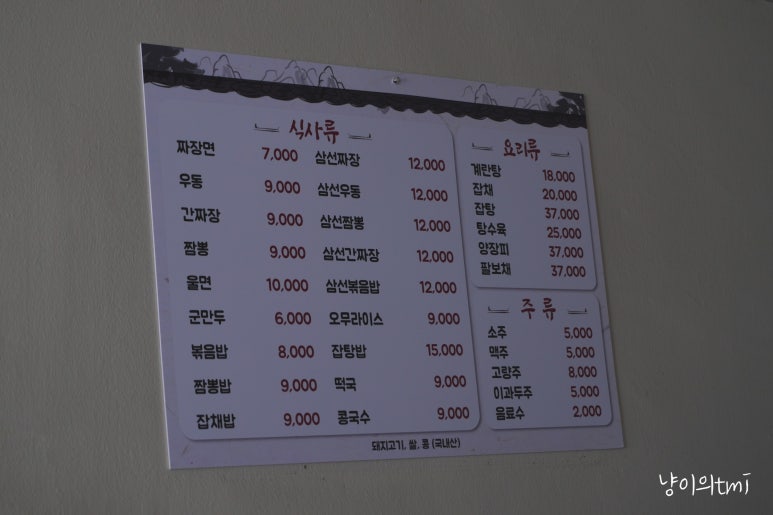 식사류
짜장면 7,000
우동 9,000
간짜장 9,000
짬뽕 9,000
울면 10,000
군만두 6,000
볶음밥 8,000
짬뽕밥 9,000
잡채밥 9,000
삼선짜장 12,000
삼선우동 12,000
삼선짬뽕 12,000
삼선간짜장 12,000
삼선볶음밥 12,000
오무라이스 9,000
잡탕밥 15,000
떡국 9,000
콩국수 9,000
요리류
계란탕 18,000
잡채 20,000
잡탕 37,000
탕수육 25,000
양장피 37,000
팔보채 37,000
주류
소주 5,000
맥주 5,000
고량주 8,000
이과두주 5,000
음료수 2,000
돼지고기, 쌀, 콩 (국내산)
냥이의tmi